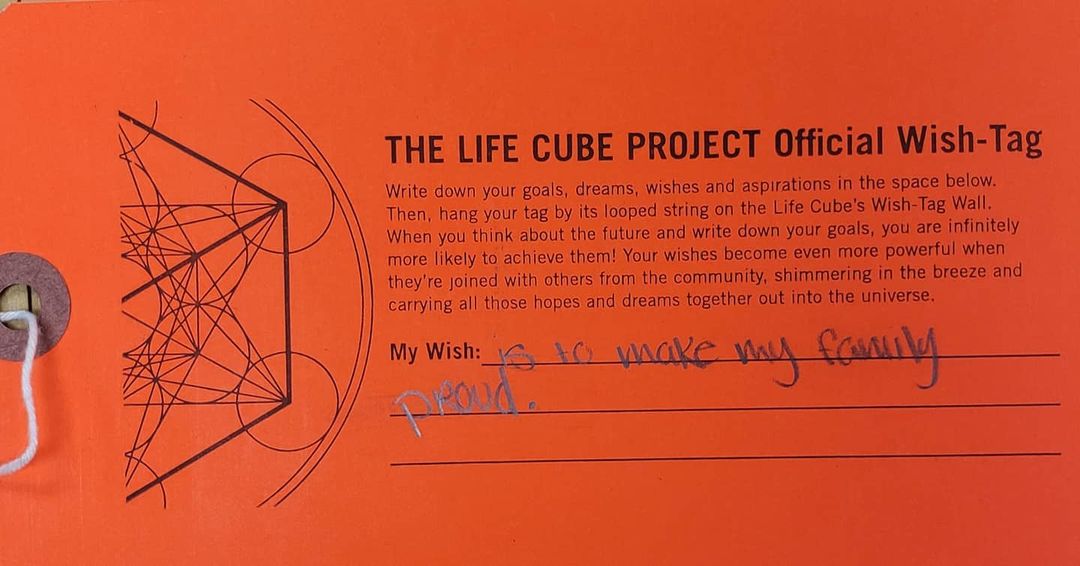 THE LIFE CUBE PROJECT Official Wish-Tag
Write down your goals, dreams, wishes and aspirations in the space below.
Then, hang your tag by its looped string on the Life Cube's Wish-Tag Wall.
When you think about the future and write down your goals, you are infinitely
more likely to achieve them! Your wishes become even more powerful when
they're joined with others from the community, shimmering in the breeze and
carrying all those hopes and dreams together out into the universe.
My Wish: is to make my family
proud.